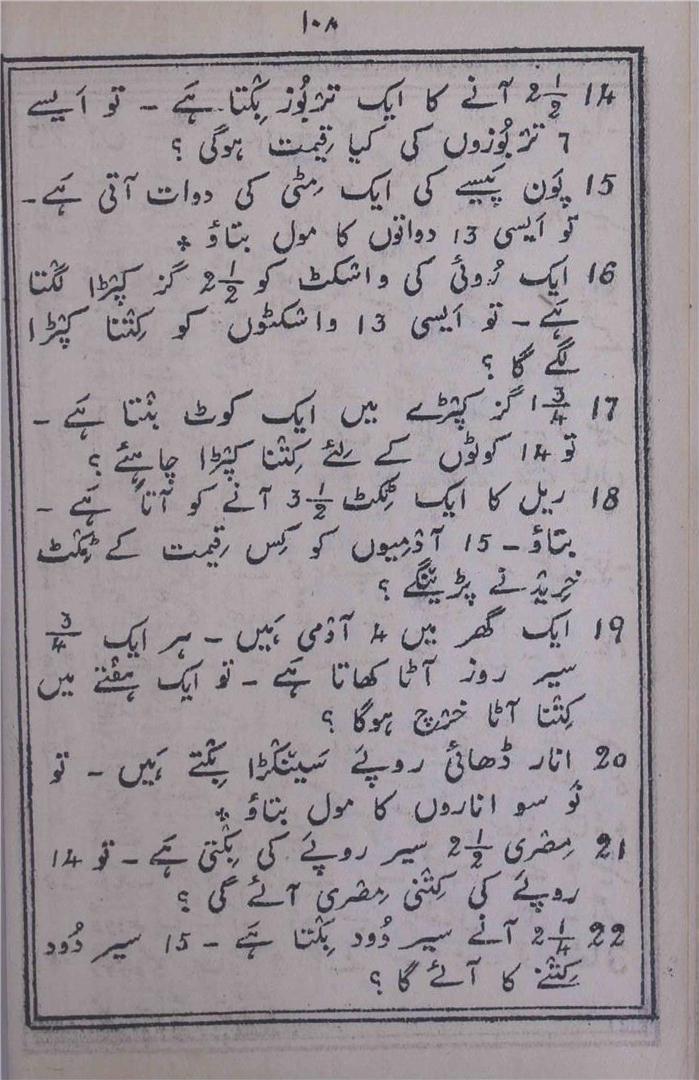 ۱۰۸
14 2½ آنے کا ایک تربُوز بِکتا ہَے ـ تو اَیسے
7 تربُوزوں کی کیا قِیمت ہوگی ؟
15 پَون پَیسے کی ایک مِٹی کی دوات آتی ہَے ـ
تو اَیسی 13 دواتوں کا مول بتاؤ *
16 ایک رُوئی کی واشکٹ کو 2½ گز کپڑا لگتا
ہَے ـ تو اَیسی 13 واشکٹوں کو کِتنا کپڑا
لگے گا ؟
17 1¾ گز کپڑے میں ایک کوٹ بنتا ہَے ـ
تو 14 کوٹوں کے لِئے کِتنا کپڑا چاہئے ؟
18 ریل کا ایک ٹِکٹ 3½ آنے کو آتا ہَے ـ
بتاؤ ـ 15 آدمِیوں کو کِس قِیمت کے ٹِکٹ
خرِیدنے پڑینگے ؟
19 ایک گھر میں 4 آدمی ہَیں ـ ہر ایک ¾
سیر روز آٹا کھاتا ہَے ـ تو ایک ہفتے میں
کِتنا آٹا خرچ ہوگا ؟
20 انار ڈھائی روپئے سَینکڑا بِکتے ہَیں ـ تو
نَو سو اناروں کا مول بتاؤ *
21 مِصری 2½ سیر روپئے کی بِکتی ہَے ـ تو 14
روپئے کی کِتنی مِصری آئے گی ؟
22 2¼ آنے سیر دُود بِکتا ہَے ـ 15 سیر دُود
کِتنے کا آئے گا ؟